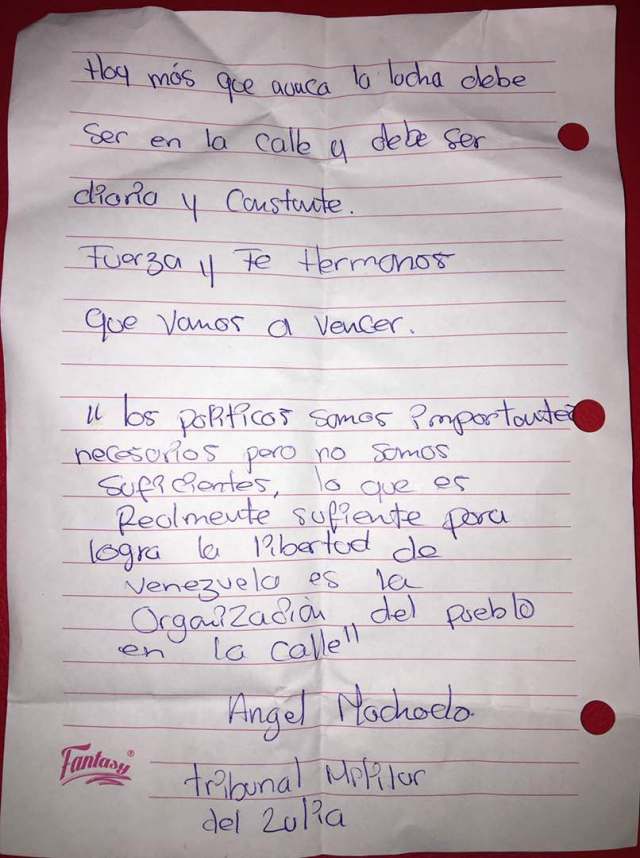 Hoy más que nunca la lucha debe
ser en la calle y debe ser
diaria y constante.
Fuerza y Fe Hermanos
que vamos a vencer.
"los politicos somos importantes
necesarios pero no somos
suficientes, lo que es
Realmente sufiente para
logra la libertad de
venezuela es la
Organización del pueblo
en la calle"
Angel Machado.
tribunal Militar
del Zulia
Fantasy®